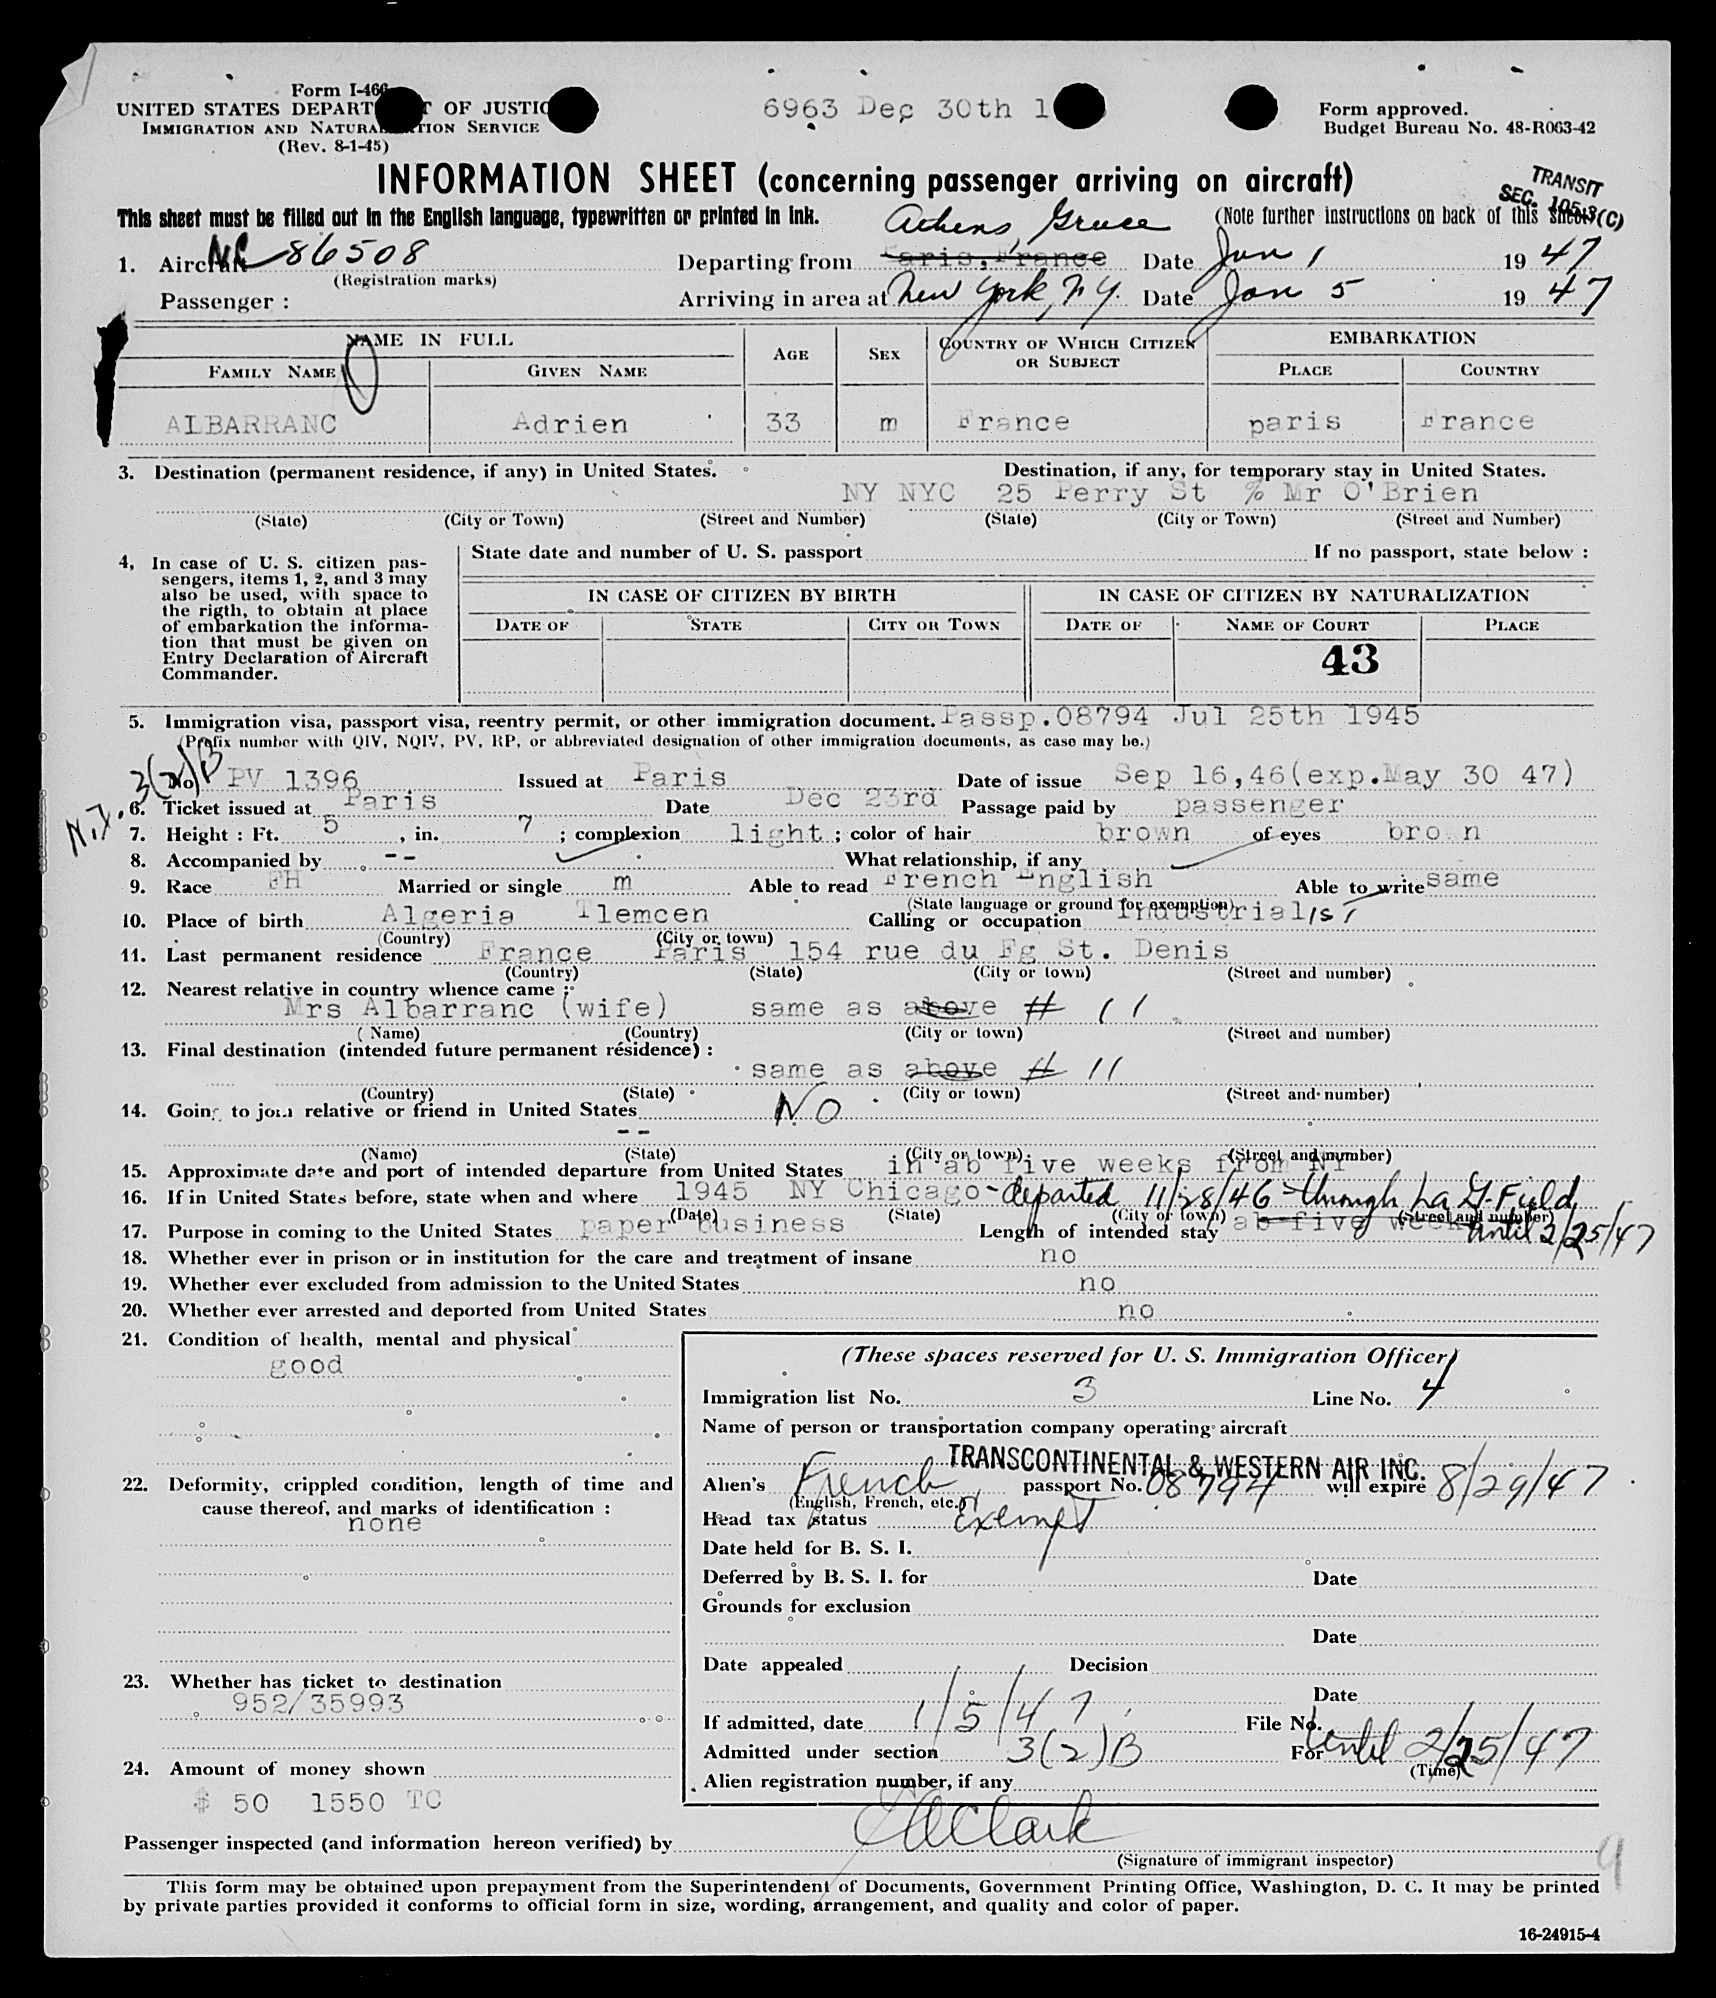 Form I-466
UNITED STATES DEPARTMENT OF JUSTICE
IMMIGRATION AND NATURALIZATION SERVICE
(Rev. 8-1-45)
6963 Dec 30th 1
Form approved.
Budget Bureau No. 48-R063-42
INFORMATION SHEET (concerning passenger arriving on aircraft)
TRANSIT
SEC. 105.3(C)
This sheet must be filled out in the English language, typewritten or printed in ink.
(Note further instructions on back of this sheet)
Athens, Greece
1. Aircraft NC 86508 Departing from Paris, France Date Jan 1 1947
(Registration marks)
Passenger : Arriving in area at New York, N.Y. Date Jan 5 1947
NAME IN FULL AGE SEX COUNTRY OF WHICH CITIZEN OR SUBJECT EMBARKATION
FAMILY NAME GIVEN NAME PLACE COUNTRY
ALBARRANC Adrien 33 m France paris France
3. Destination (permanent residence, if any) in United States. Destination, if any, for temporary stay in United States.
NY NYC 25 Perry St % Mr O'Brien
(State) (City or Town) (Street and Number) (State) (City or Town) (Street and Number)
4, In case of U. S. citizen pas-
sengers, items 1, 2, and 3 may
also be used, with space to
the rigth, to obtain at place
of embarkation the informa-
tion that must be given on
Entry Declaration of Aircraft
Commander.
State date and number of U. S. passport If no passport, state below :
IN CASE OF CITIZEN BY BIRTH IN CASE OF CITIZEN BY NATURALIZATION
DATE OF STATE CITY OR TOWN DATE OF NAME OF COURT PLACE
43
5. Immigration visa, passport visa, reentry permit, or other immigration document. Passp.08794 Jul 25th 1945
(Prefix number with QIV, NQIV, PV, RP, or abbreviated designation of other immigration documents, as case may be.)
N.Y. 3(2)B
No. PV 1396 Issued at Paris Date of issue Sep 16,46(exp.May 30 47)
6. Ticket issued at Paris Date Dec 23rd Passage paid by passenger
7. Height : Ft. 5, in. 7 ; complexion light ; color of hair brown of eyes bro n
8. Accompanied by -- What relationship, if any
9. Race FH Married or single m Able to read French English Able to write same
(State language or ground for exemption)
10. Place of birth Algeria Tlemcen Calling or occupation Industrialist
(Country) (City or town)
11. Last permanent residence France Paris 154 rue du Fg St. Denis
(Country) (State) (City or town) (Street and number)
12. Nearest relative in country whence came :
Mrs Albarranc (wife) same as above # 11
(Name) (Country) (City or town) (Street and number)
13. Final destination (intended future permanent résidence) :
same as above # 11
(Country) (State) (City or town) (Street and number)
14. Going to join relative or friend in United States No
--
(Name) (State) (City or town) (Street and number)
15. Approximate date and port of intended departure from United States in ab five weeks from NY
16. If in United States before, state when and where 1945 NY Chicago - departed 11/28/46 through La G. Field
(Date) (State) (City or town) (Street and number)
17. Purpose in coming to the United States paper business Length of intended stay ab five weeks until 2/25/47
18. Whether ever in prison or in institution for the care and treatment of insane no
19. Whether ever excluded from admission to the United States no
20. Whether ever arrested and deported from United States no
21. Condition of health, mental and physical
good
22. Deformity, crippled condition, length of time and
cause thereof, and marks of identification :
none
23. Whether has ticket to destination
952/35993
24. Amount of money shown
$ 50 1550 TC
(These spaces reserved for U. S. Immigration Officer)
Immigration list No. 3 Line No. 4
Name of person or transportation company operating aircraft
TRANSCONTINENTAL & WESTERN AIR INC.
Alien's French passport No. 08794 will expire 8/29/47
(English, French, etc.)
Head tax status Exempt
Date held for B. S. I.
Deferred by B. S. I. for Date
Grounds for exclusion
Date
Date appealed Decision
Date
If admitted, date 1/5/47 File No.
Admitted under section 3(2)B For until 2/25/47
(Time)
Alien registration number, if any
Passenger inspected (and information hereon verified) by EAClark
(Signature of immigrant inspector)
9
This form may be obtained upon prepayment from the Superintendent of Documents, Government Printing Office, Washington, D. C. It may be printed
by private parties provided it conforms to official form in size, wording, arrangement, and quality and color of paper.
16-24915-4